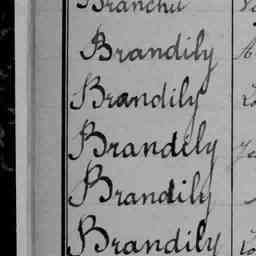 Brandily
Brandily
Brandily
Brandily
Brandily